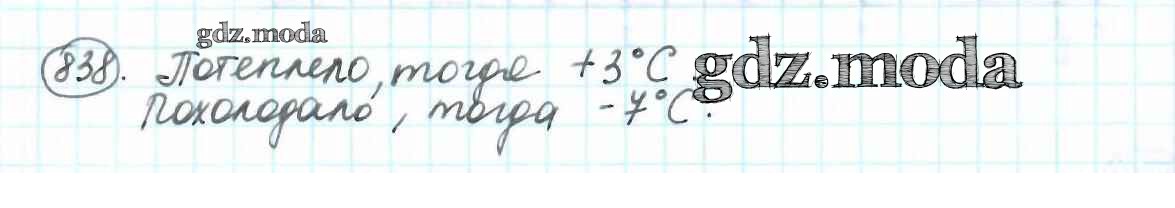 gdz.moda
838. Потеплело, тогда +3°C. gdz.moda
Похолодало, тогда -7°C.